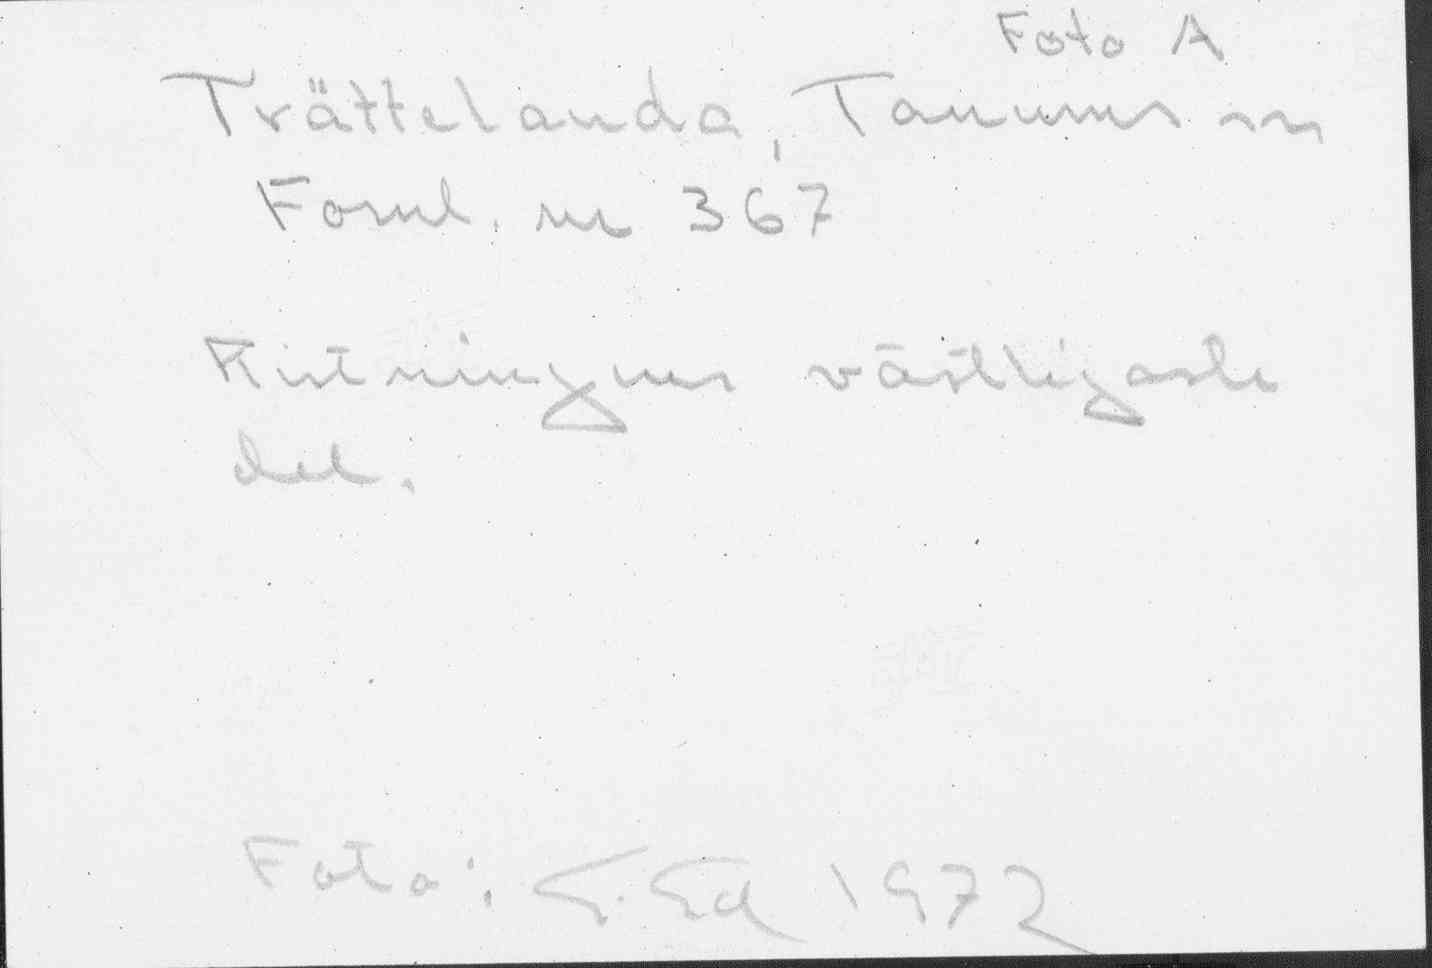 Foto A
Trättelanda, Tanums sn
Fornl. nr 367
Ristningens västligaste
del.
Foto: 1972